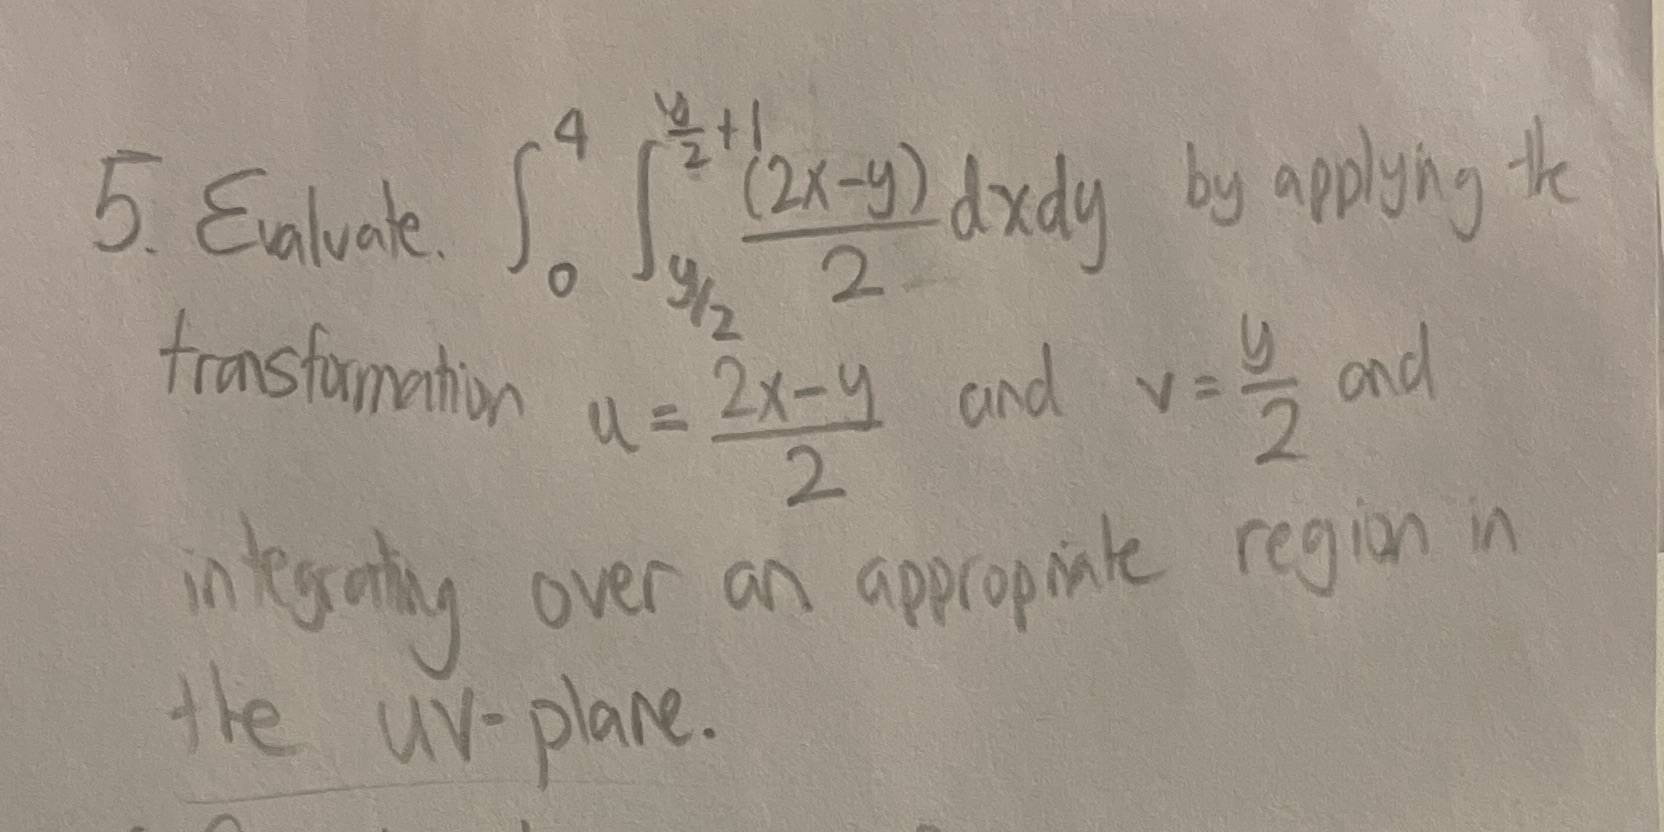 5. Evaluate. ∫₀⁴ ∫_{y/2}^{y/2+1} (2x-y)/2 dxdy by applying the
transformation u = (2x-y)/2 and v = y/2 and
integrating over an appropriate region in
the uv-plane.